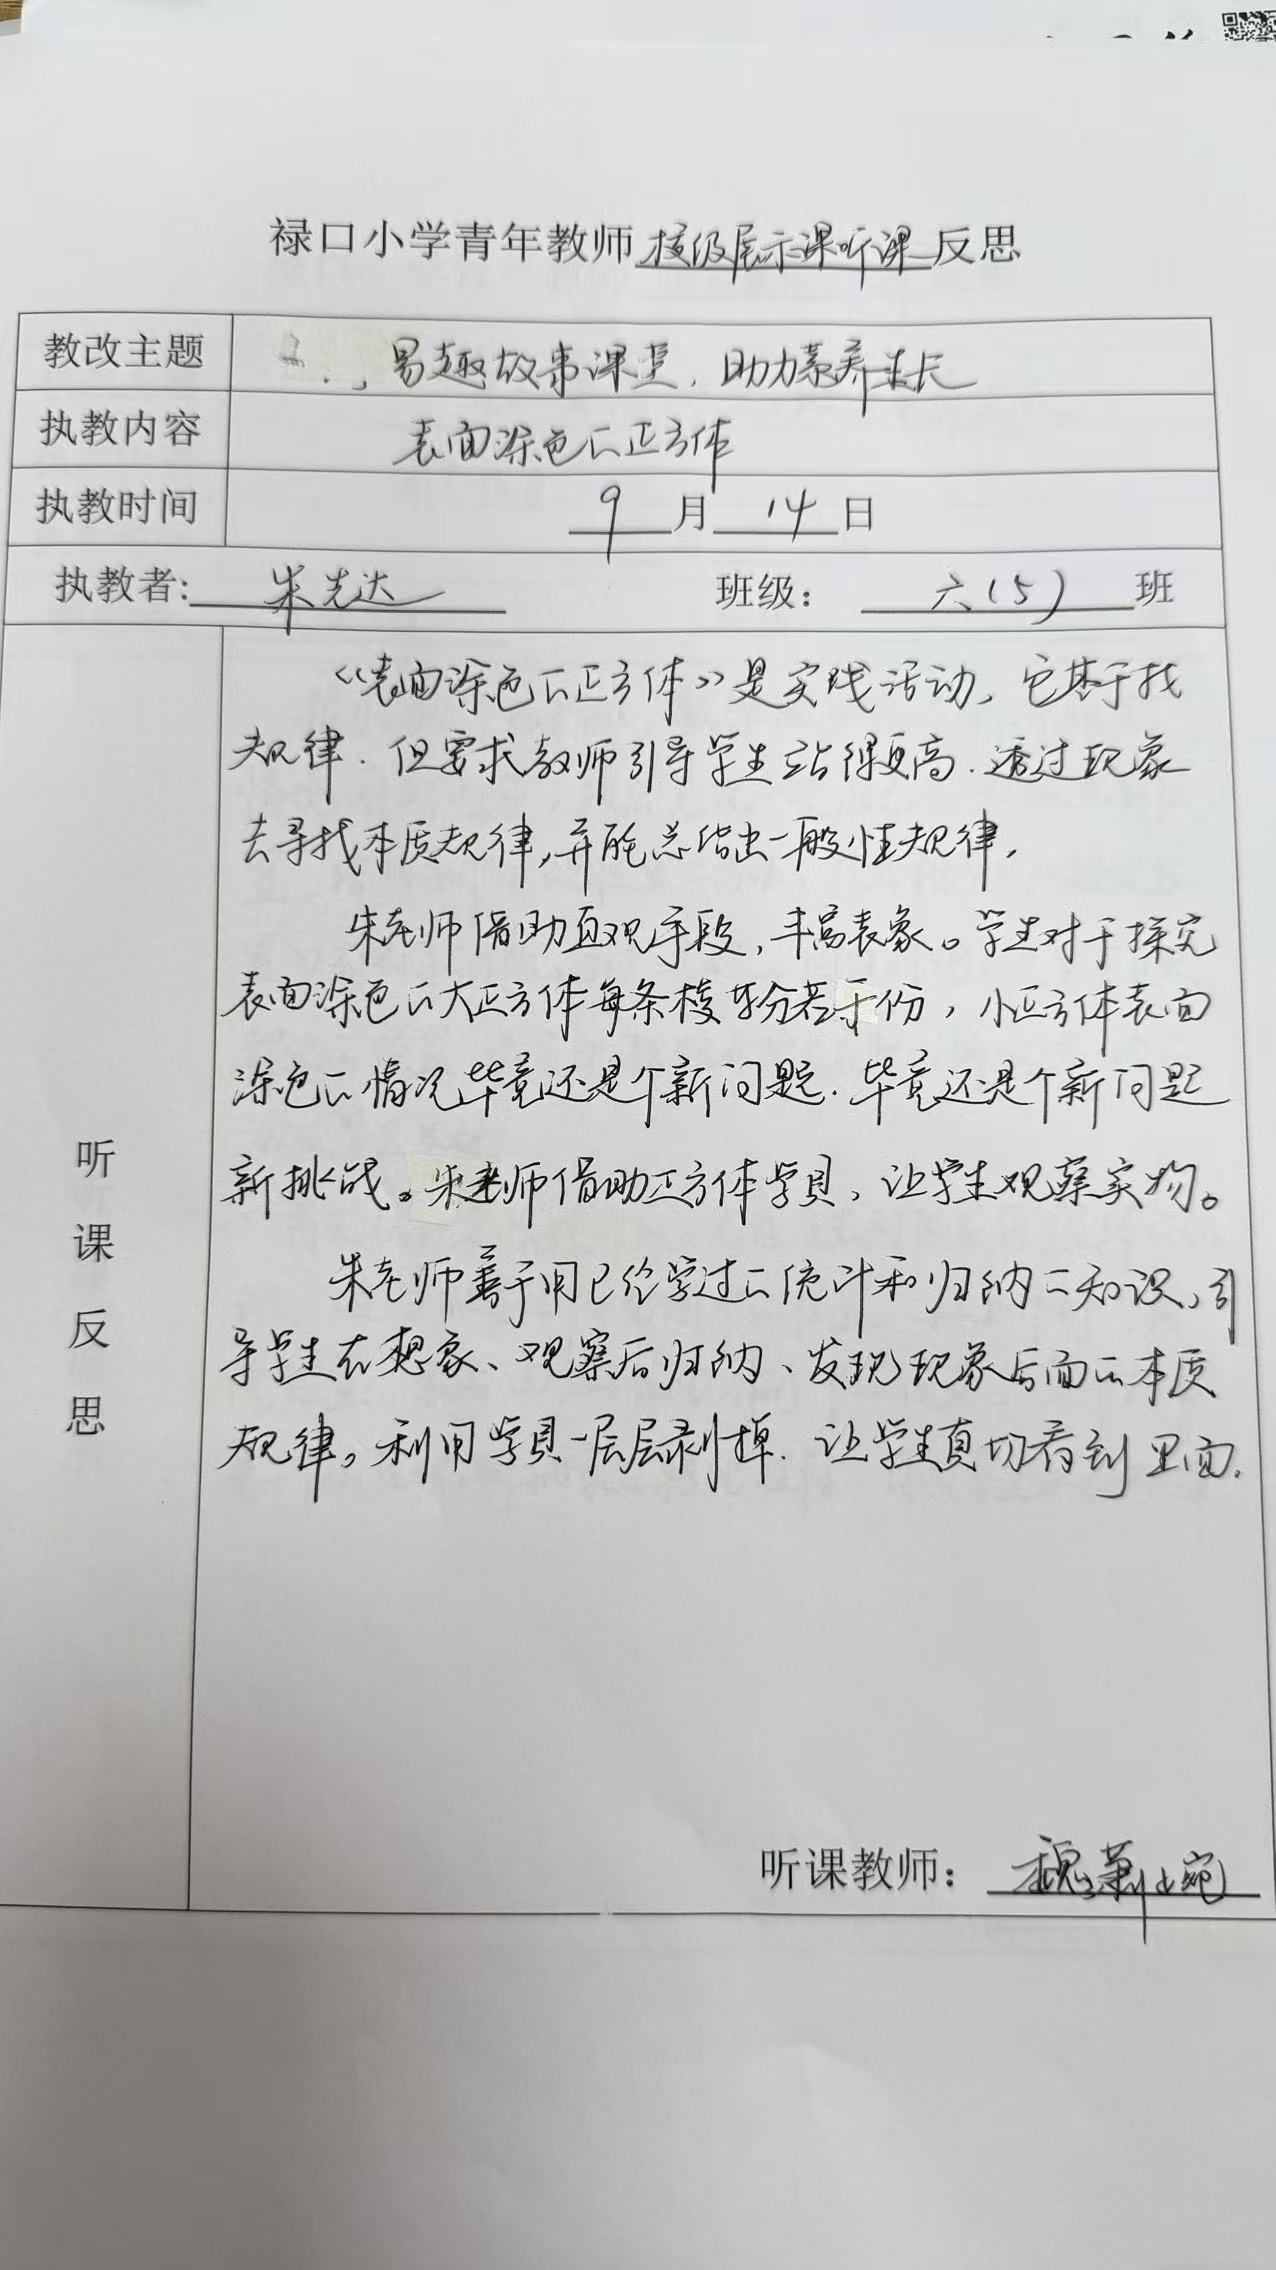 禄口小学青年教师校级展示课听课反思
教改主题 易趣故事课堂，助力素养生长
执教内容 表面涂色的正方体
执教时间 9月14日
执教者：朱先达 班级：六（5）班
听课反思
《表面涂色的正方体》是实践活动，它基于找
规律．但要求教师引导学生站得更高．透过现象
去寻找本质规律，并能总结出一般性规律．
朱老师借助直观手段，丰富表象。学生对于探究
表面涂色的大正方体每条棱平分若干份，小正方体表面
涂色的情况毕竟还是个新问题．毕竟还是个新问题
新挑战。朱老师借助正方体学具，让学生观察实物。
朱老师善于用已经学过的统计和归纳的知识，引
导学生在想象、观察后归纳、发现现象后面的本质
规律。利用学具一层层剥掉．让学生真切看到里面．
听课教师：